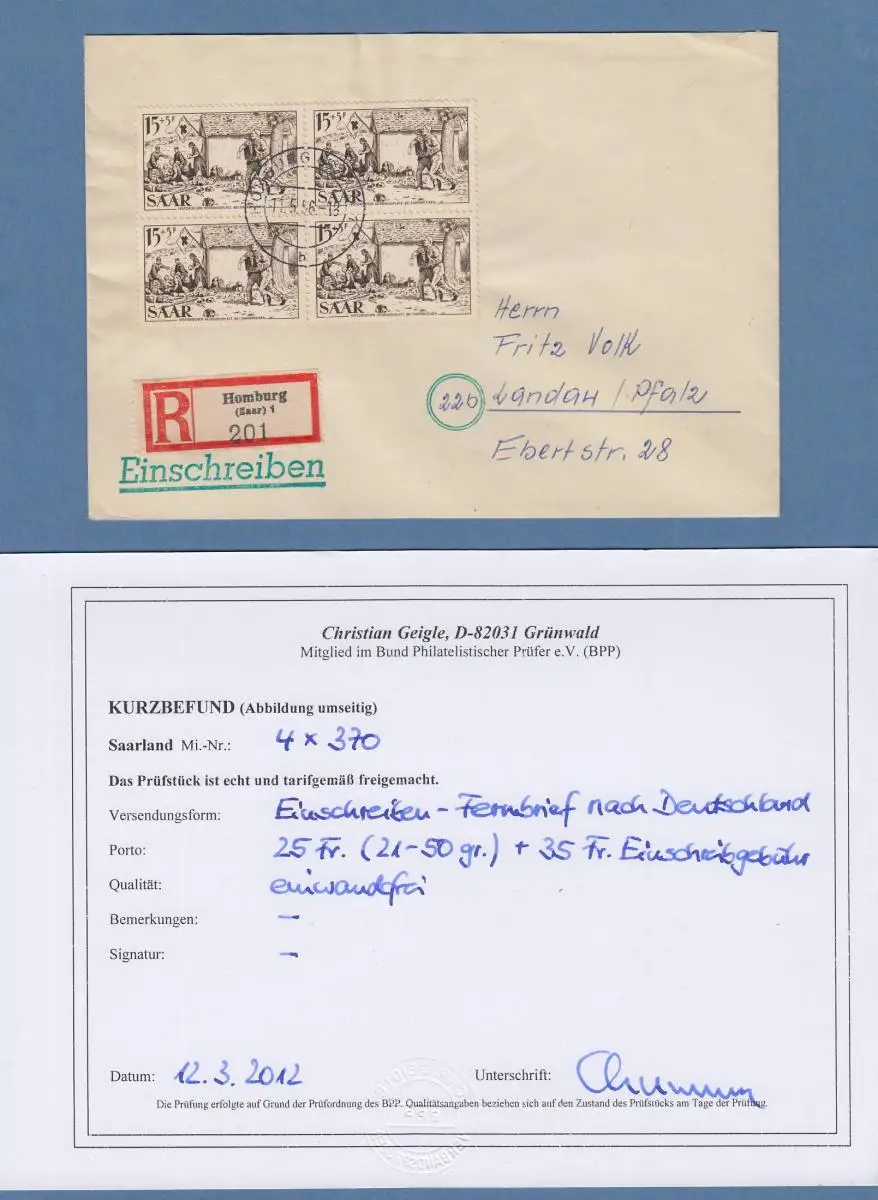 15+5F 15+5F
SAAR SAAR
HOMBURG
11.5.56.-18
b
15+5F 15+5F
SAAR SAAR
Herrn
Fritz Volk
22b Landau / Pfalz
Ebertstr. 28
R Homburg
(Saar) 1
201
Einschreiben
Christian Geigle, D-82031 Grünwald
Mitglied im Bund Philatelistischer Prüfer e.V. (BPP)
KURZBEFUND (Abbildung umseitig)
Saarland Mi.-Nr.: 4 x 370
Das Prüfstück ist echt und tarifgemäß freigemacht.
Versendungsform: Einschreiben - Fernbrief nach Deutschland
Porto: 25 Fr. (21-50 gr.) + 35 Fr. Einschreibgebühr
Qualität: einwandfrei
Bemerkungen: —
Signatur: —
Datum: 12.3.2012 Unterschrift:
Die Prüfung erfolgte auf Grund der Prüfordnung des BPP. Qualitätsangaben beziehen sich auf den Zustand des Prüfstücks am Tage der Prüfung.